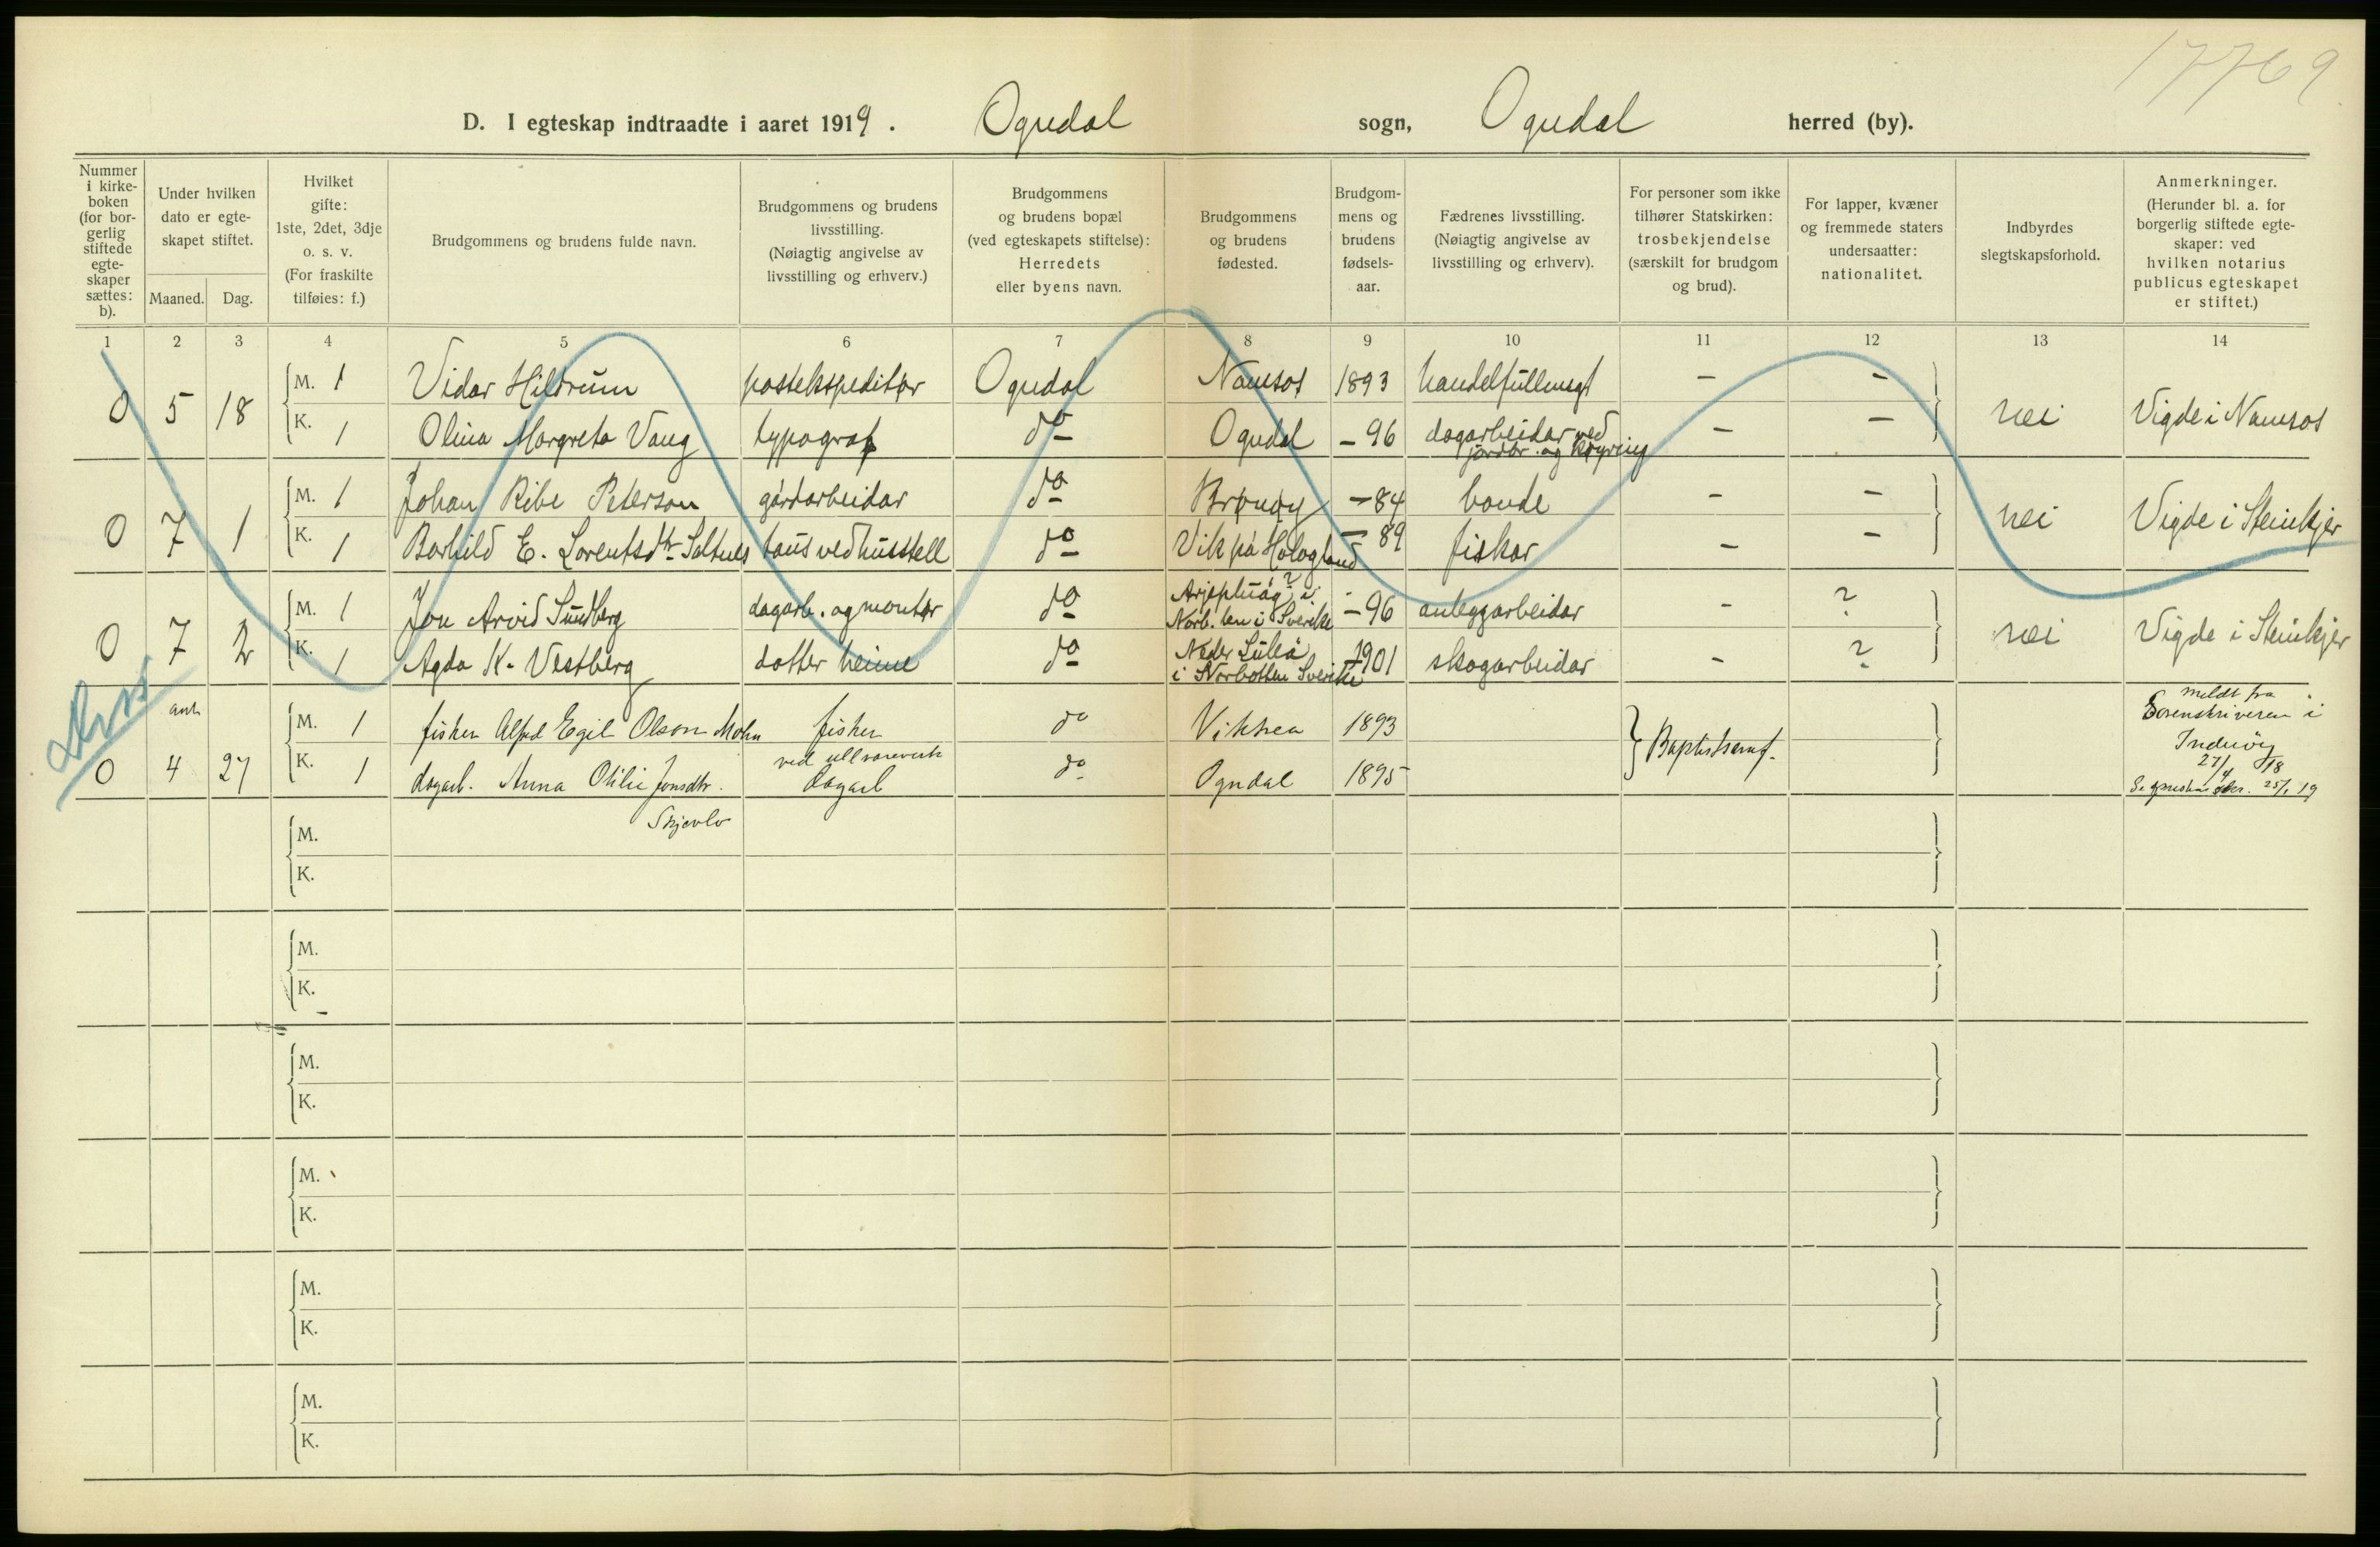 17769
D. I egteskap indtraadte i aaret 1919. Ogndal sogn, Ogndal herred (by).
Nummer i kirke-boken (for bor-gerlig stiftede egte-skaper sættes: b).
Under hvilken dato er egte-skapet stiftet.
Maaned. Dag.
Hvilket gifte: 1ste, 2det, 3dje o. s. v. (For fraskilte tilføies: f.)
Brudgommens og brudens fulde navn.
Brudgommens og brudens livsstilling. (Nøiagtig angivelse av livsstilling og erhverv.)
Brudgommens og brudens bopæl (ved egteskapets stiftelse): Herredets eller byens navn.
Brudgommens og brudens fødested.
Brudgom-mens og brudens fødsels-aar.
Fædrenes livsstilling. (Nøiagtig angivelse av livsstilling og erhverv).
For personer som ikke tilhører Statskirken: trosbekjendelse (særskilt for brudgom og brud).
For lapper, kvæner og fremmede staters undersaatter: nationalitet.
Indbyrdes slegtskapsforhold.
Anmerkninger. (Herunder bl. a. for borgerlig stiftede egte-skaper: ved hvilken notarius publicus egteskapet er stiftet.)
1 2 3 4 5 6 7 8 9 10 11 12 13 14
M. 1 Vidar Hildrum postekspeditør Ogndal Namsos 1893 handelfullmegt - -
0 5 18 nei Vigde i Namsos
K. 1 Olina Margreta Vang typograf do Ogndal - 96 dagarbeidar ved jordbr. og køyring - -
M. 1 Johan Ribe Peterson gårdarbeidar do Brønøy - 84 bonde - -
0 7 1 nei Vigde i Steinkjer
K. 1 Borhild E. Lorentsdtr Saltnes taus ved husstell do Vik på Hålogland - 89 fiskar - -
M. 1 Jon Arvid Sundberg dagarb. og montør do Arjepluåg? i Norb. len i Sverike - 96 anleggarbeidar - ?
0 7 2 nei Vigde i Steinkjer
K. 1 Agda K. Vestberg dotter heime do Neder Luleå i Norbotten Sverike 1901 skogarbeidar - ?
M. 1 fisker Alfred Egil Olson Mohn fisker do Vikna 1893
0 4 27 Baptistsamf. meldt fra Sorenskriveren i Inderøy 27/4 18
K. 1 dagarb. Anna Otilie Jonsdtr. Skjevlo ved ullvareverk dagarb do Ogndal 1895
M.
K.
M.
K.
M.
K.
M.
K.
M.
K.
M.
K.